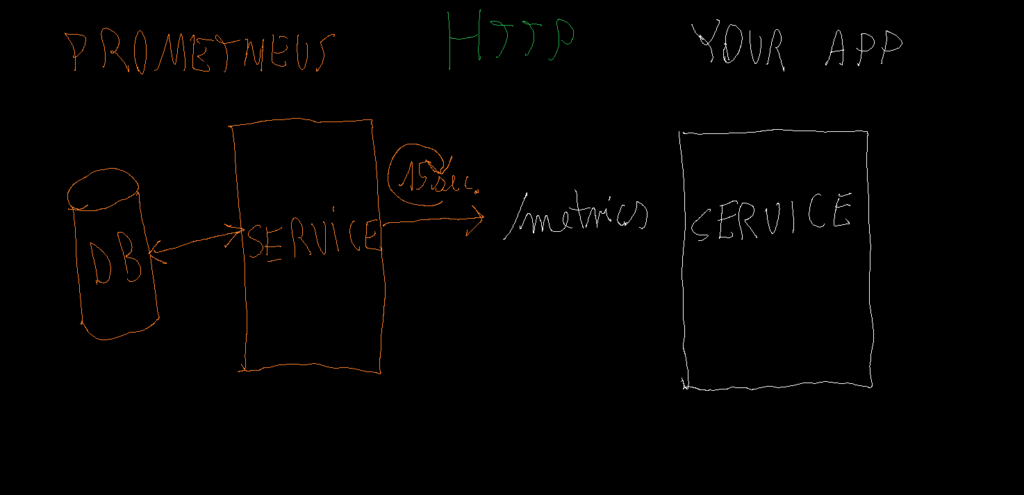 PROMETHEUS HTTP YOUR APP
15 sec.
/metrics
SERVICE
SERVICE
DB